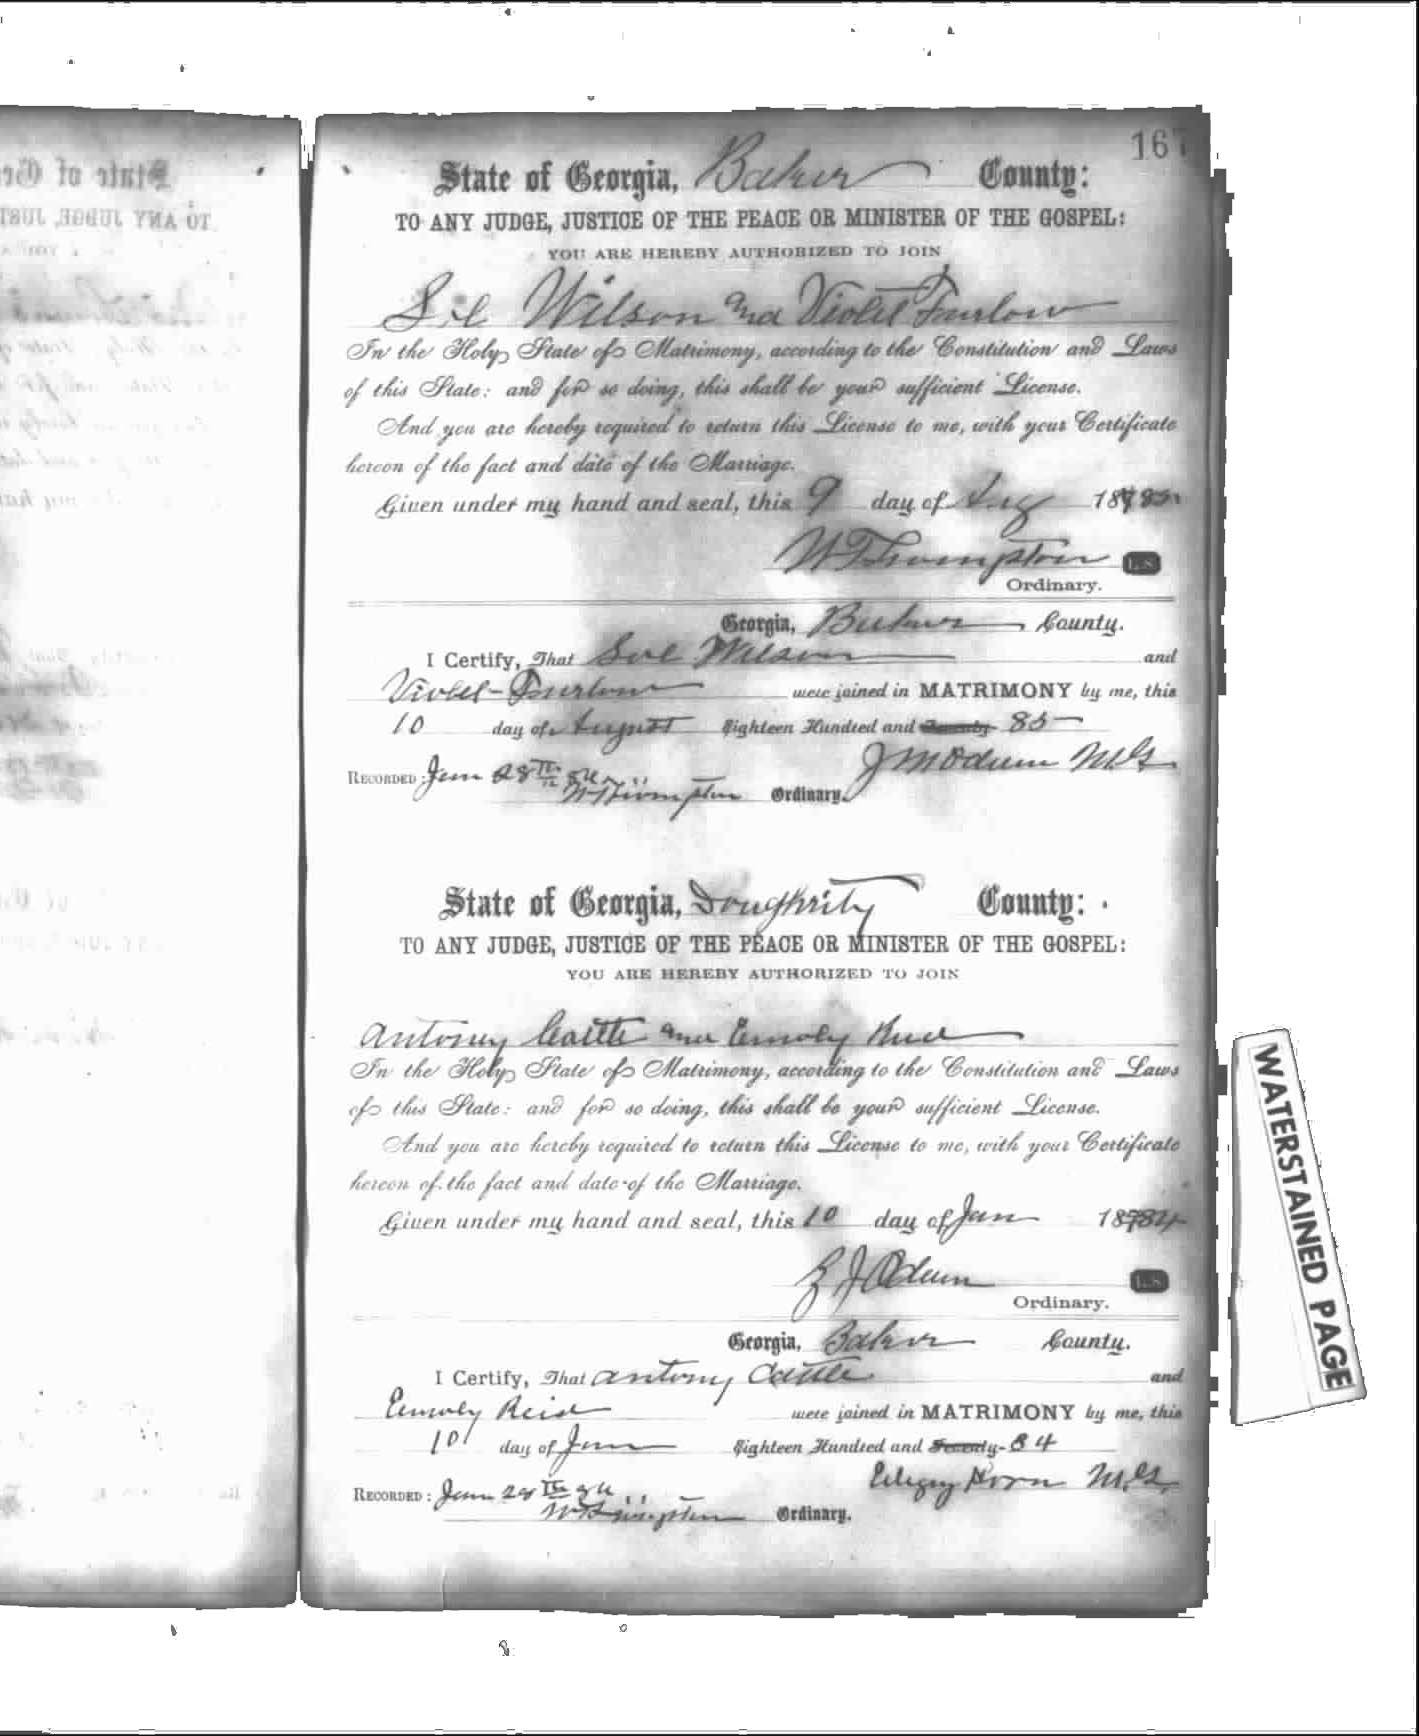 167
State of Georgia, Baker County:
TO ANY JUDGE, JUSTICE OF THE PEACE OR MINISTER OF THE GOSPEL:
YOU ARE HEREBY AUTHORIZED TO JOIN
Sol Wilson and Violet Furlow
In the Holy State of Matrimony, according to the Constitution and Laws
of this State: and for so doing, this shall be your sufficient License.
And you are hereby required to return this License to me, with your Certificate
hereon of the fact and date of the Marriage.
Given under my hand and seal, this 9 day of Aug 1885
W Thompston L.S.
Ordinary.
Georgia, Baker County.
I Certify, That Sol Wilson and
Violet Furlow were joined in MATRIMONY by me, this
10 day of August Eighteen Hundred and Seventy- 85
J M Odum M G
RECORDED: Jan 28th
W Thompston Ordinary.
State of Georgia, Doughrity County:
TO ANY JUDGE, JUSTICE OF THE PEACE OR MINISTER OF THE GOSPEL:
YOU ARE HEREBY AUTHORIZED TO JOIN
Antony Cattle and Emoly Reid
In the Holy State of Matrimony, according to the Constitution and Laws
of this State: and for so doing, this shall be your sufficient License.
And you are hereby required to return this License to me, with your Certificate
hereon of the fact and date of the Marriage.
Given under my hand and seal, this 10 day of Jan 1884
J Odum L.S.
Ordinary.
Georgia, Baker County.
I Certify, That Antony Cattle and
Emoly Reid were joined in MATRIMONY by me, this
10 day of Jan Eighteen Hundred and Seventy- 84
Horn M.G.
RECORDED: Jan 28th
W Thompston Ordinary.
WATERSTAINED PAGE